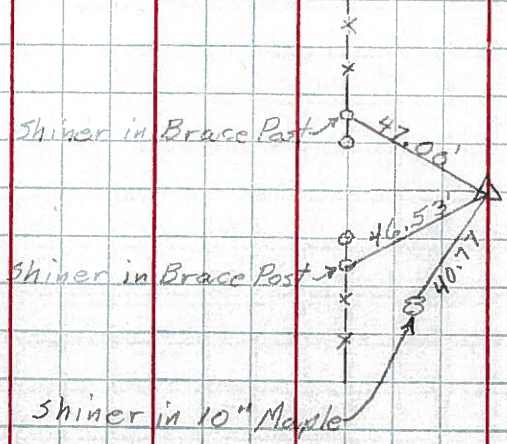 Shiner in Brace Post
47.00'
46.53'
Shiner in Brace Post
40.77
Shiner in 10" Maple